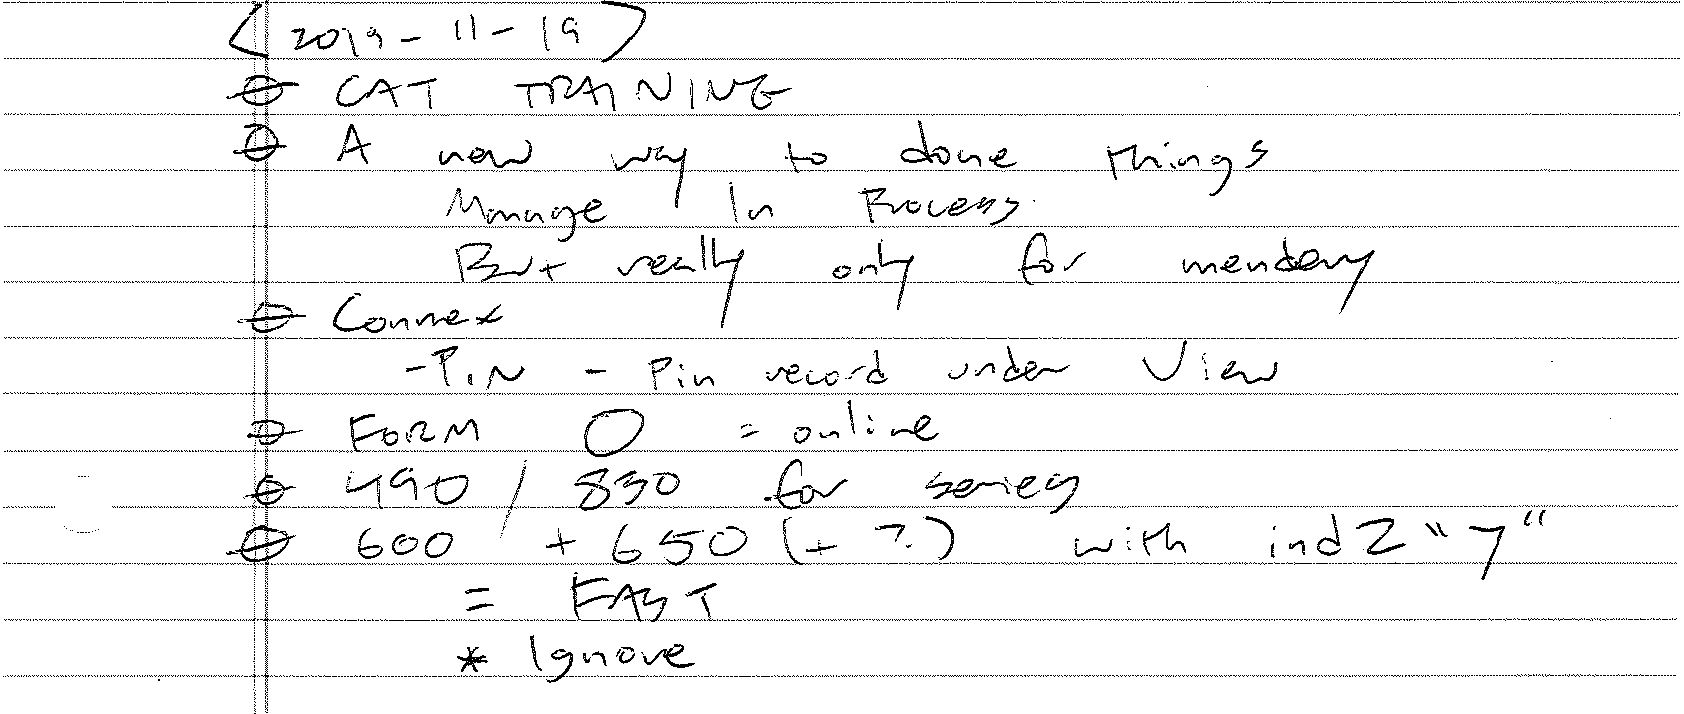 (2019-11-19)
CAT TRAINING
A new way to done things
Manage In Process
But really only for mendery
Connex
- PIN - Pin record under View
FORM O = online
490 / 830 for series
600 + 650 (+ ?) with ind2 "7"
= FAST
* Ignore